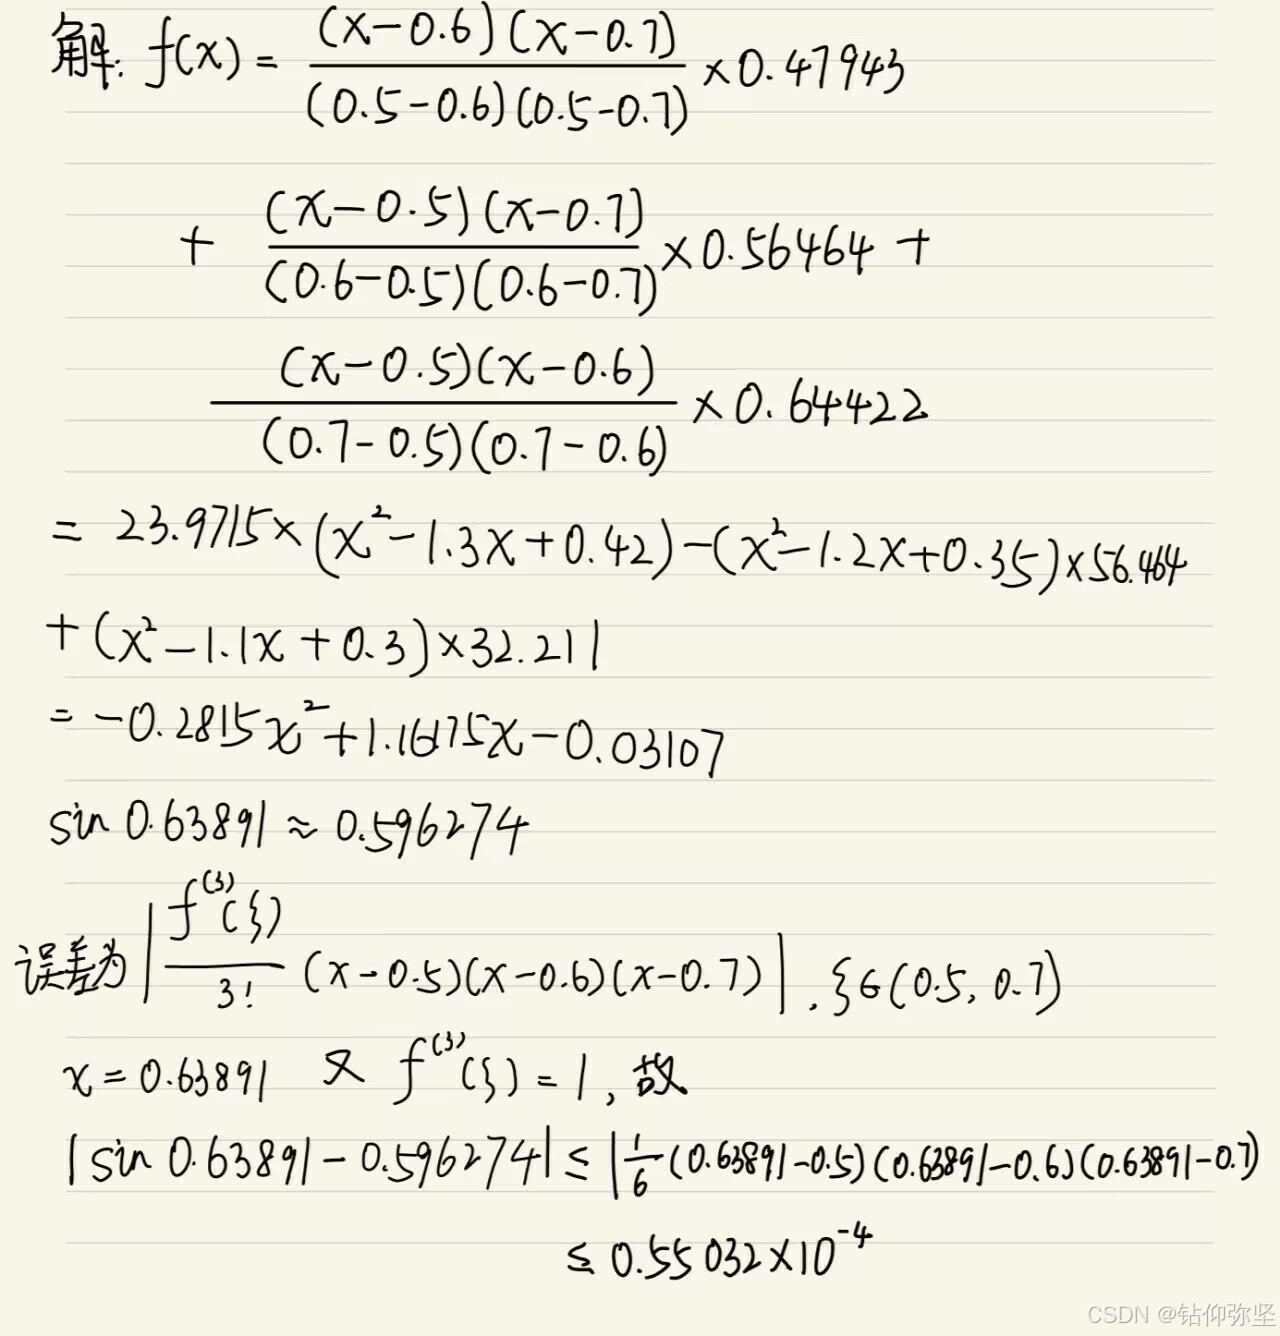 解: f(x) = (x-0.6)(x-0.7) / (0.5-0.6)(0.5-0.7) ×0.47943
+ (x-0.5)(x-0.7) / (0.6-0.5)(0.6-0.7) ×0.56464 +
(x-0.5)(x-0.6) / (0.7-0.5)(0.7-0.6) ×0.64422
= 23.9715×(x²-1.3x+0.42)-(x²-1.2x+0.35)×56.464
+(x²-1.1x+0.3)×32.211
= -0.2815x²+1.16175x-0.03107
sin 0.63891≈0.596274
误差为 |f⁽³⁾(ξ) / 3! (x-0.5)(x-0.6)(x-0.7)|, ξ∈(0.5, 0.7)
x=0.63891 又 f⁽³⁾(ξ)=1, 故
|sin 0.63891-0.596274|≤|1/6(0.63891-0.5)(0.63891-0.6)(0.63891-0.7)
≤0.55032×10⁻⁴
CSDN @钻仰弥坚